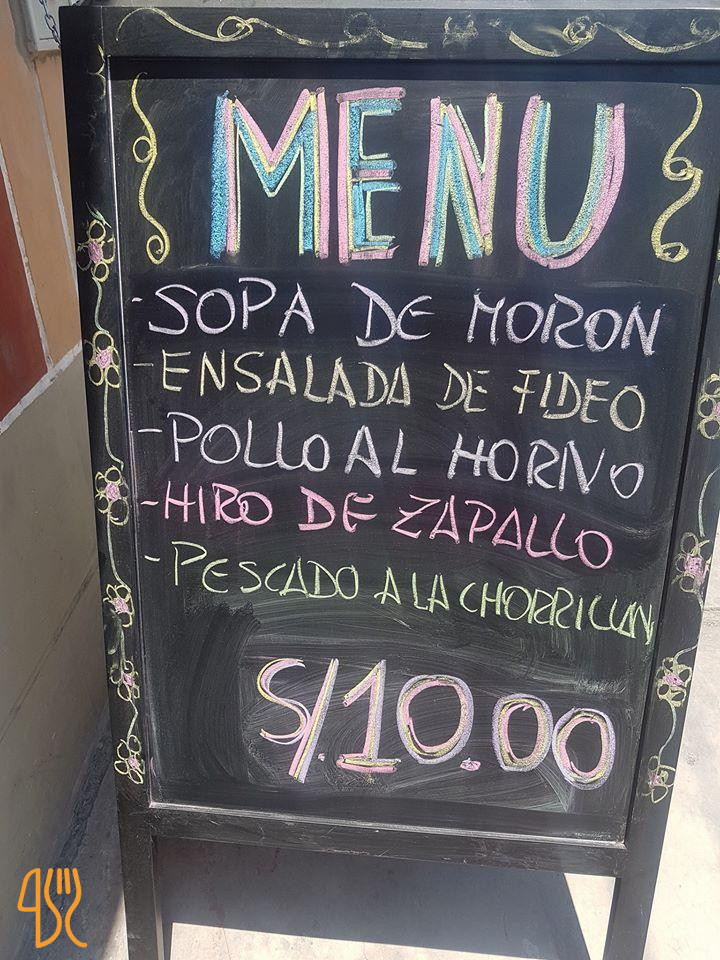 MENU
-SOPA DE MORON
-ENSALADA DE FIDEO
-POLLO AL HORNO
-HIRO DE ZAPALLO
-PESCADO A LA CHORRILLAN
S/.10.00